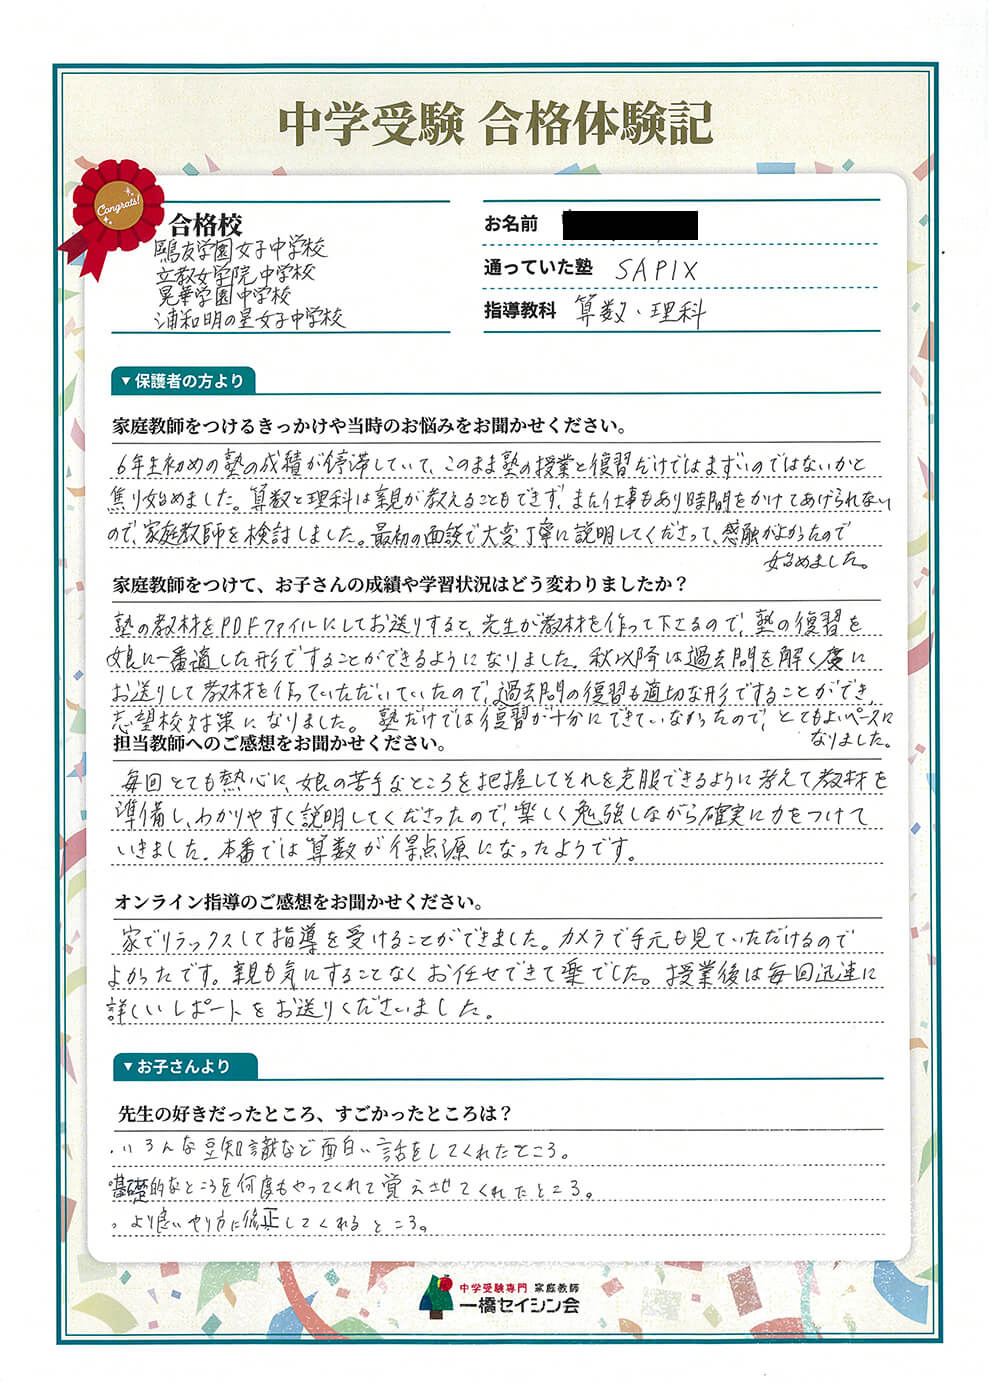 中学受験 合格体験記
Congrats!
合格校
鷗友学園女子中学校
立教女学院中学校
晃華学園中学校
浦和明の星女子中学校
お名前
通っていた塾 SAPIX
指導教科 算数・理科
▼保護者の方より
家庭教師をつけるきっかけや当時のお悩みをお聞かせください。
6年生初めの塾の成績が停滞していて、このまま塾の授業と復習だけではまずいのではないかと
焦り始めました。算数と理科は親が教えることもできず、また仕事もあり時間をかけてあげられない
ので、家庭教師を検討しました。最初の面談で大変丁寧に説明してくださって、感触がよかったので
始めました。
家庭教師をつけて、お子さんの成績や学習状況はどう変わりましたか？
塾の教材をPDFファイルにしてお送りすると、先生が教材を作って下さるので、塾の復習を
娘に一番適した形ですることができるようになりました。秋以降は過去問を解く度に
お送りして教材を作っていただいていたので、過去問の復習も適切な形ですることができ、
志望校対策になりました。塾だけでは復習が十分にできていなかったので、とてもよいペースに
なりました。
担当教師へのご感想をお聞かせください。
毎回とても熱心に、娘の苦手なところを把握してそれを克服できるように考えて教材を
準備し、わかりやすく説明してくださったので、楽しく勉強しながら確実に力をつけて
いきました。本番では算数が得点源になったようです。
オンライン指導のご感想をお聞かせください。
家でリラックスして指導を受けることができました。カメラで手元も見ていただけるので
よかったです。親も気にすることなくお任せできて楽でした。授業後は毎回迅速に
詳しいレポートをお送りくださいました。
▼お子さんより
先生の好きだったところ、すごかったところは？
・いろんな豆知識など面白い話をしてくれたところ。
・基礎的なところを何度もやってくれて覚えさせてくれたところ。
・より良いやり方に修正してくれるところ。
中学受験専門 家庭教師
一橋セイシン会